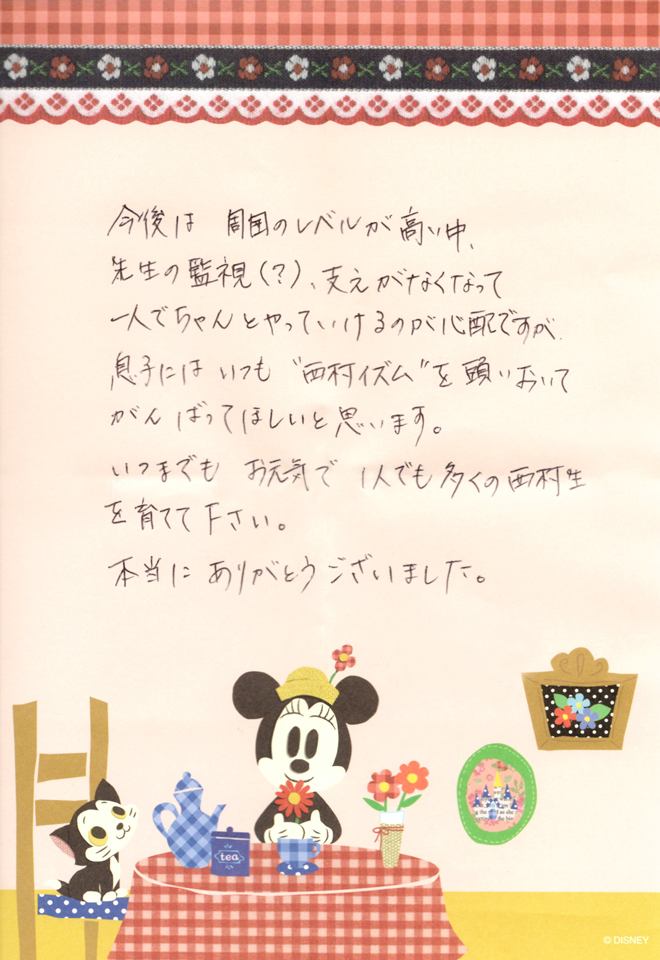 今後は 周囲のレベルが高い中、
先生の監視(?)、支えがなくなって
一人でちゃんとやっていけるのが心配ですが
息子には いつも "西村イズム"を頭いおいて
がんばってほしいと思います。
いつまでも お元気で 1人でも多くの西村生
を育てて下さい。
本当に ありがとうございました。
tea
© DISNEY